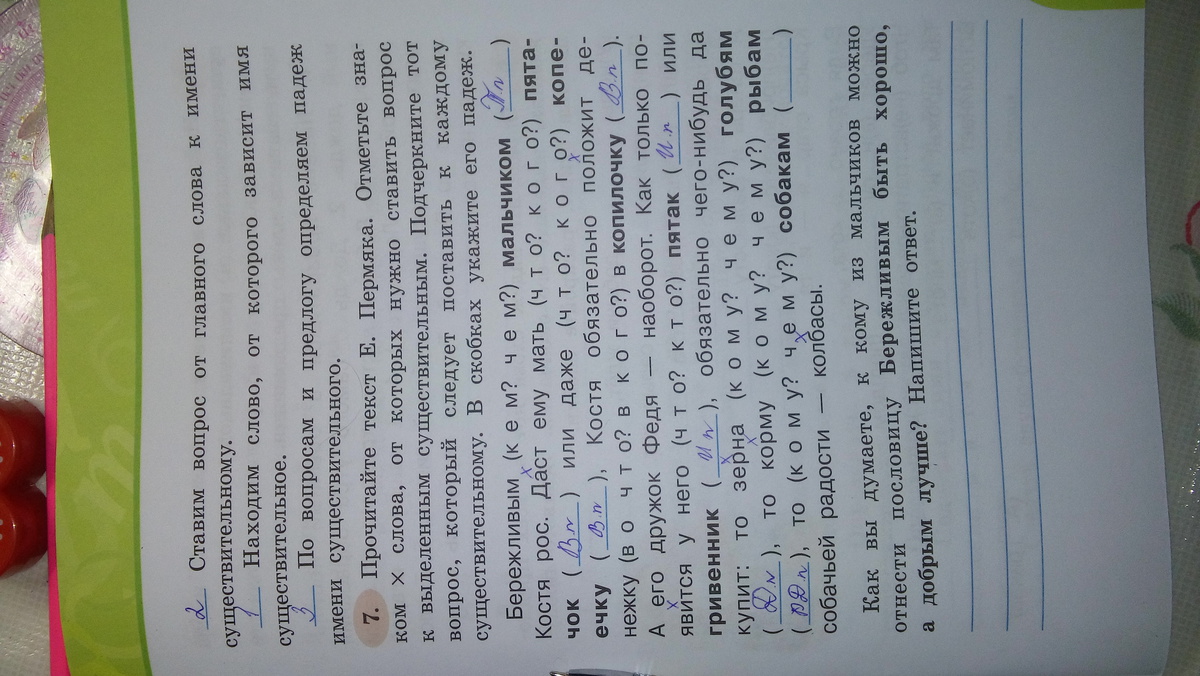 2 Ставим вопрос от главного слова к имени
существительному.
1 Находим слово, от которого зависит имя
существительное.
3 По вопросам и предлогу определяем падеж
имени существительного.
7. Прочитайте текст Е. Пермяка. Отметьте зна-
ком × слова, от которых нужно ставить вопрос
к выделенным существительным. Подчеркните тот
вопрос, который следует поставить к каждому
существительному. В скобках укажите его падеж.
Бережливым (кем? чем?) мальчиком (Т.п)
Костя рос. Даст ему мать (что? кого?) пята-
чок (В.п) или даже (что? кого?) копе-
ечку (В.п), Костя обязательно положит де-
нежку (во что? в кого?) в копилочку (В.п).
А его дружок Федя — наоборот. Как только по-
явится у него (что? кто?) пятак (И.п) или
гривенник (И.п), обязательно чего-нибудь да
купит: то зерна (кому? чему?) голубям
(Д.п), то корму (кому? чему?) рыбам
(Д.п), то (кому? чему?) собакам (
собачьей радости — колбасы.
Как вы думаете, к кому из мальчиков можно
отнести пословицу Бережливым быть хорошо,
а добрым лучше? Напишите ответ.